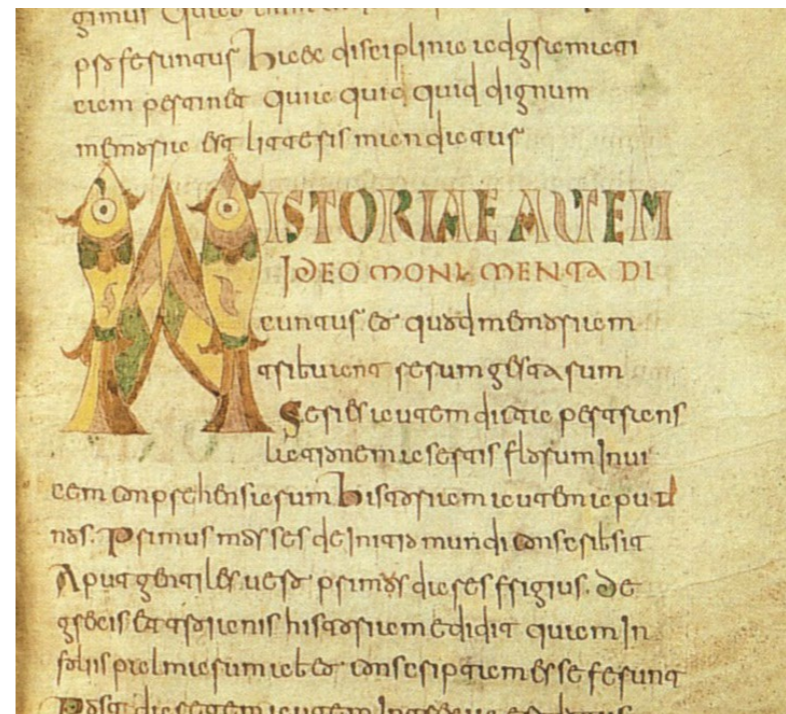 gimus
proferuntur haec disciplina ad gramati
cam pertinet quia quid quid dignum
memoria est litteris mandatur
HISTORIAE AUTEM
IDEO MONUMENTA DI
cuntur eo quod memoriam
tribuant rerum gestarum
Series autem dicta per trans
lationem a sertis florum inui
cem conprehensarum historiam autem aput
nos. Primus moyses de initio mundi conscribsit
Aput gentiles uero primos dares frigius. de
grecis et troianis historiam edidit quam in
foliis palmarum ab eo conscriptam esse ferunt
Post daretem autem in